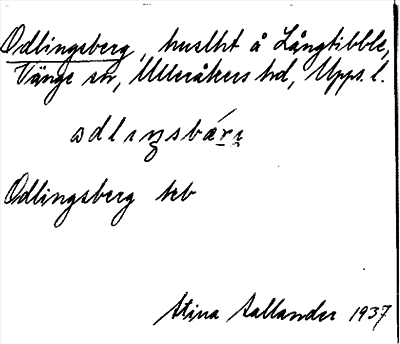 Odlingsberg, huslht å Långtibble,
Vänge sn, Ulleråkers hd, Upps. l.
ɷdlıŋsbárı
Odlingsberg kb
Stina Sallander 1937